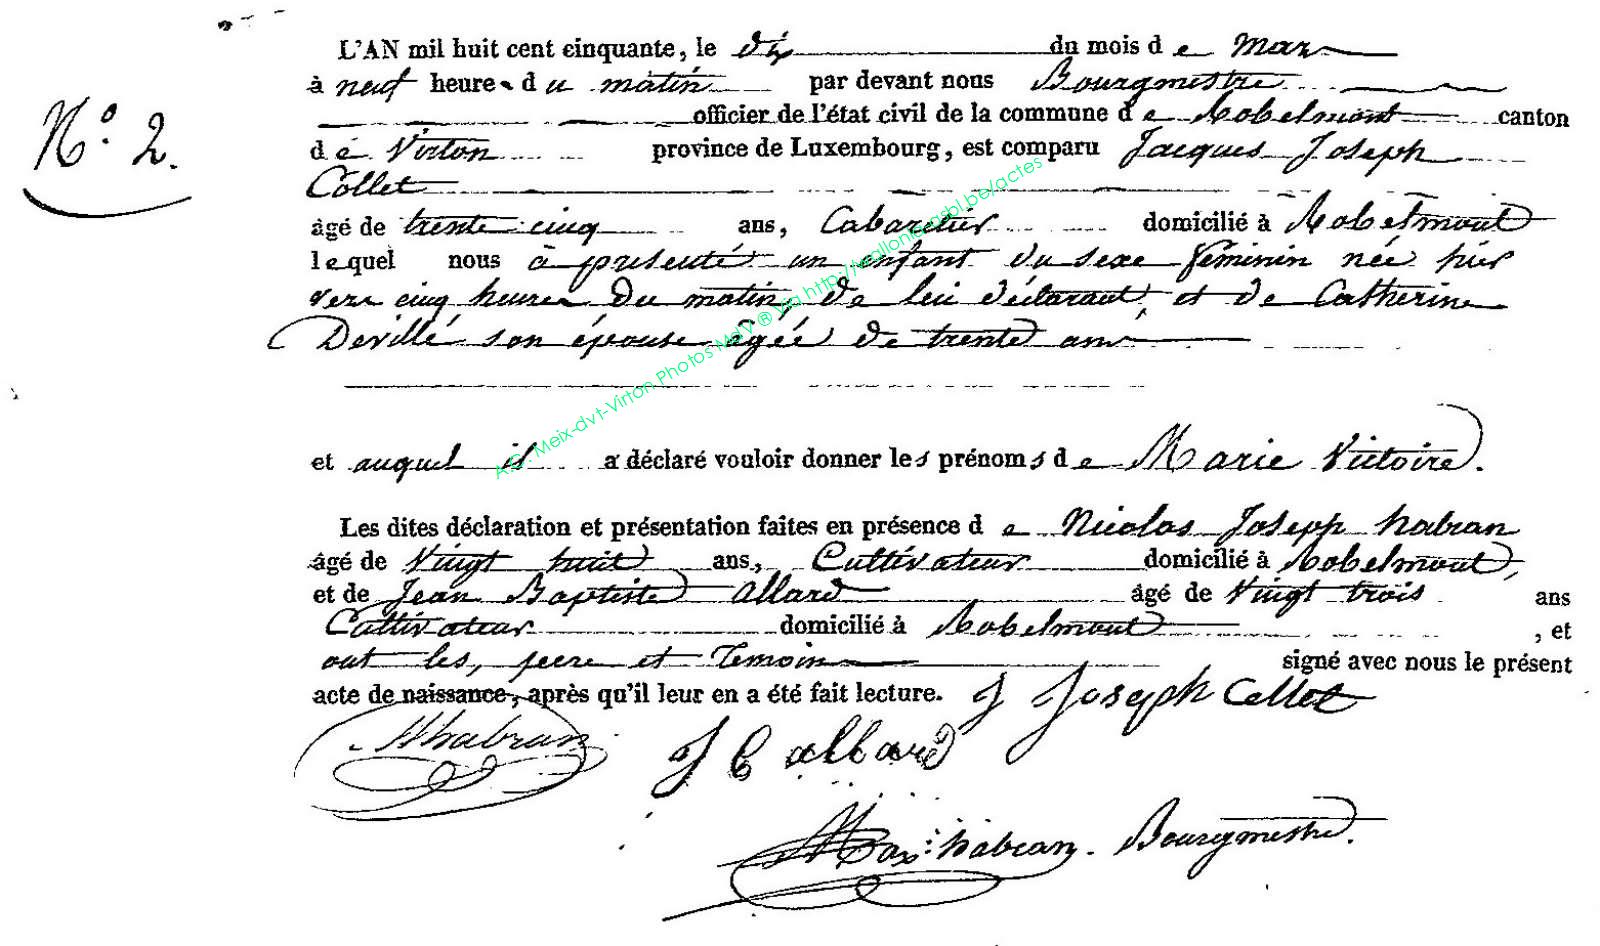 L'AN mil huit cent cinquante, le dix du mois de Mars
à neuf heures du matin par devant nous Bourgmestre
officier de l'état civil de la commune de Robelmont canton
de Virton province de Luxembourg, est comparu Jacques Joseph
N.° 2.
Collet
âgé de trente cinq ans, Cabaretier domicilié à Robelmont
lequel nous à présenté un enfant du sexe féminin née hier
vers cinq heures du matin, de lui déclarant et de Catherine
Devillé son épouse agée de trente ans
et auquel il a déclaré vouloir donner les prénoms de Marie Victoire.
Les dites déclaration et présentation faites en présence de Nicolas Joseph habran
âgé de Vingt huit ans, Cultivateur domicilié à Robelmont,
et de Jean Baptiste Allard âgé de Vingt trois ans
Cultivateur domicilié à Robelmont , et
ont les, peere et Temoins signé avec nous le présent
acte de naissance, après qu'il leur en a été fait lecture. J Joseph Collet
Nhabran J B allard
habran. Bourgmestre.
A.C. Meix-dvt-Virton Photos MdV ® via http://wallonia-asbl.be/actes